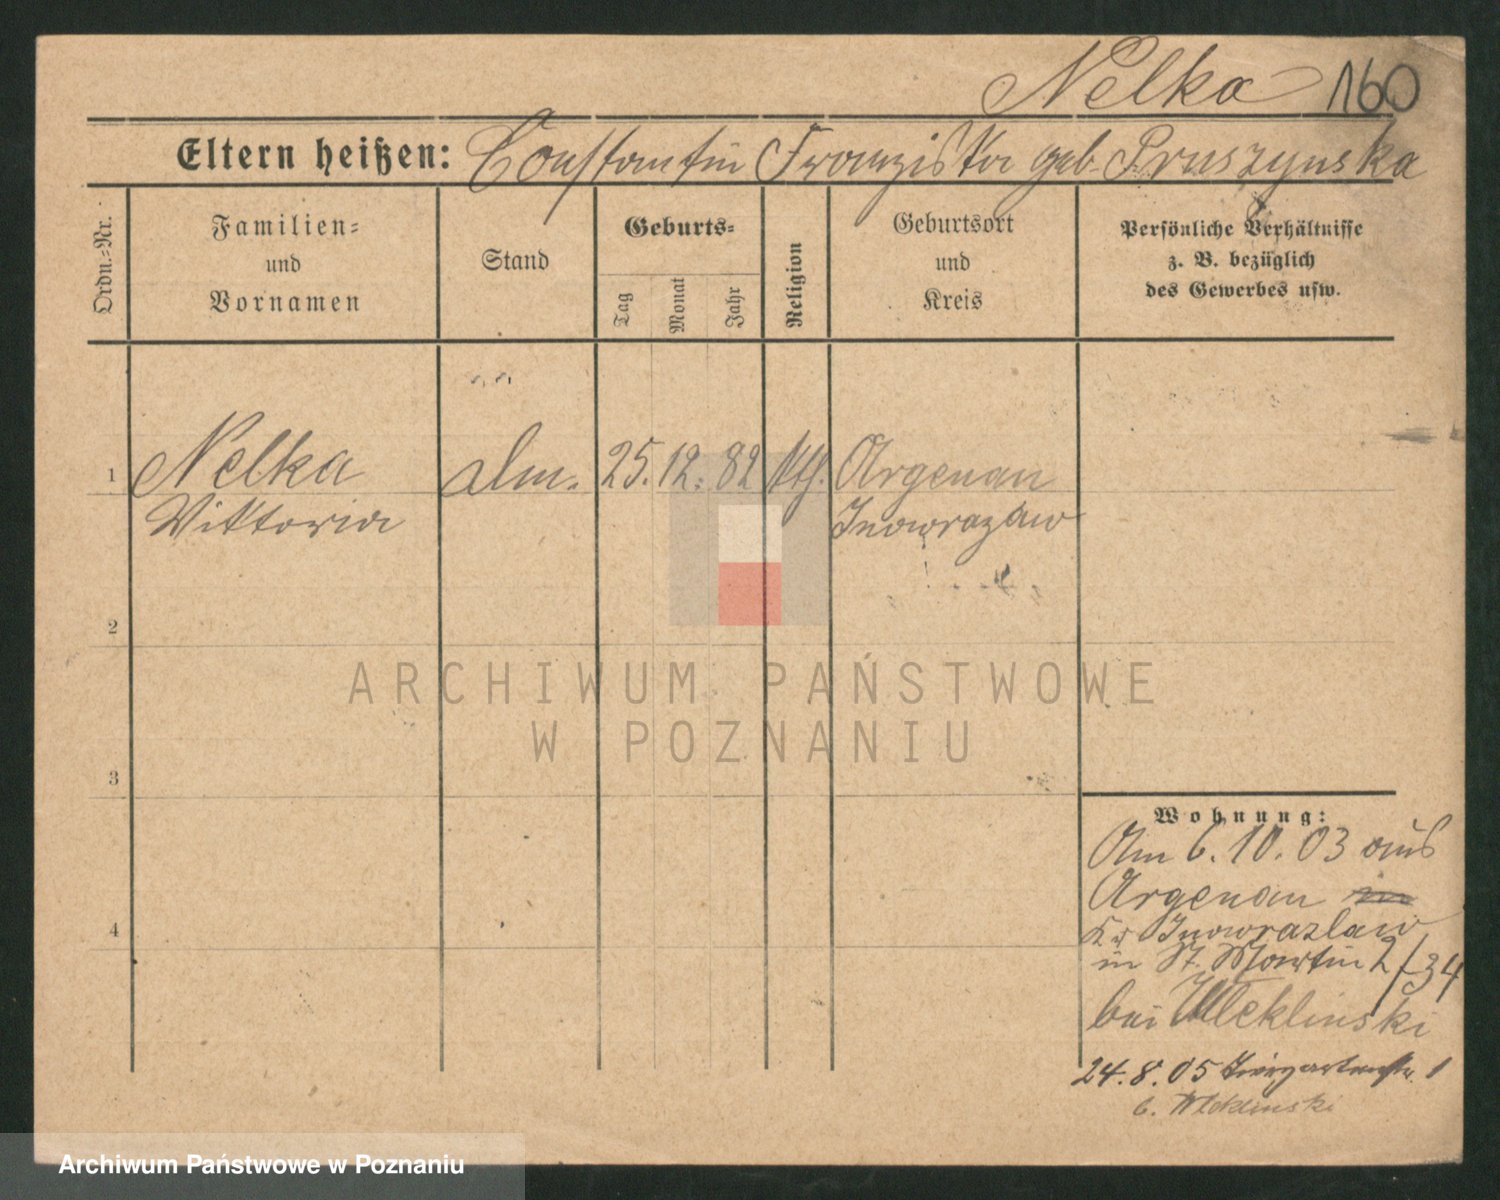 Nelka 160
Eltern heißen: Constantin Franziska geb. Pruszynska
Ordn.=Nr.
Familien=
und
Vornamen
Stand
Geburts=
Tag
Monat
Jahr
Religion
Geburtsort
und
Kreis
Persönliche Verhältnisse
z. B. bezüglich
des Gewerbes usw.
1 Nelka 25. 12. 82 kth. Argenau
Viktoria Inowrazlaw
2
ARCHIWUM PAŃSTWOWE
W POZNANIU
3
Wohnung:
Am 6. 10. 03 aus
Argenau in
Kr Inowrazlaw
in St. Martin 2/34
bei Wleklinski
4
24. 8. 05 1
b. Wleklinski
Archiwum Państwowe w Poznaniu